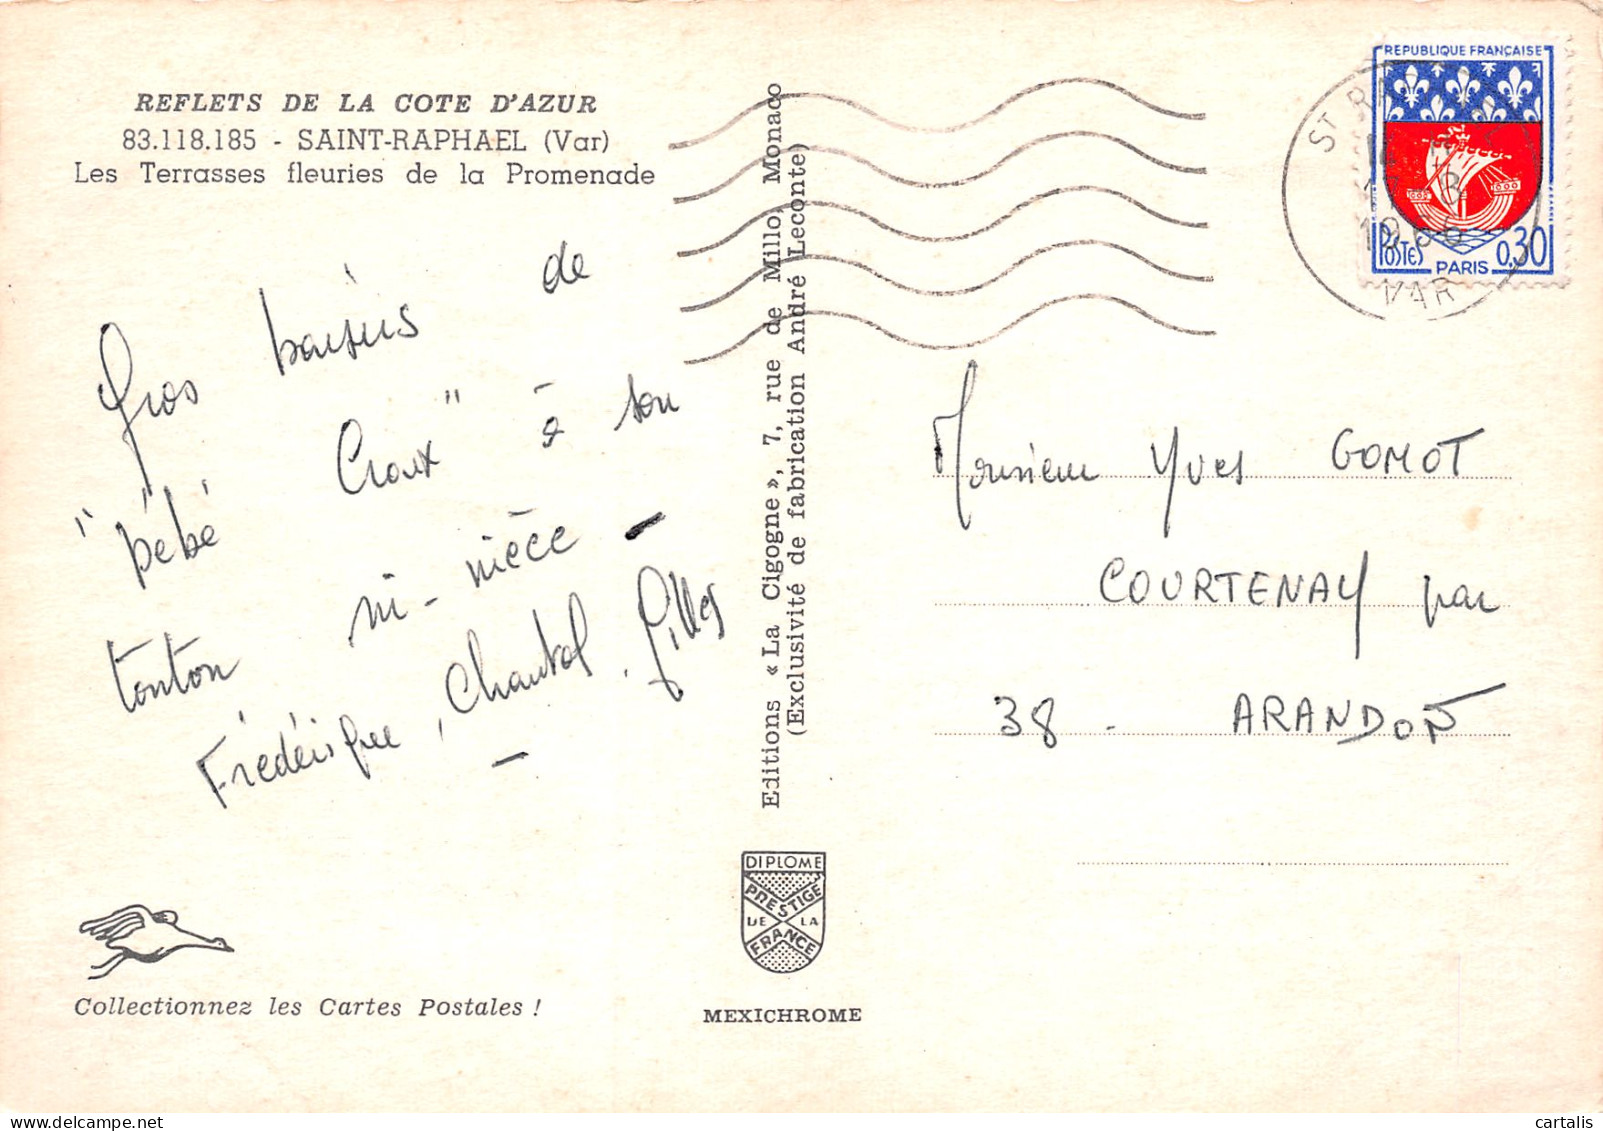 REFLETS DE LA COTE D'AZUR
83.118.185 - SAINT-RAPHAEL (Var)
Les Terrasses fleuries de la Promenade
Gros baisers de
"bébé Croux" à son
tonton ni-nièce -
Frédérique, Chantal, Gilles
-
Collectionnez les Cartes Postales !
Editions « La Cigogne », 7, rue de Millo, Monaco
(Exclusivité de fabrication André Leconte)
DIPLOME
PRESTIGE
DE LA
FRANCE
MEXICHROME
REPUBLIQUE FRANÇAISE
POSTES
0,30
PARIS
ST RA
VAR
Monsieur Yves GOMOT
COURTENAY par
38 - ARANDON
cartalis - delcampe.net